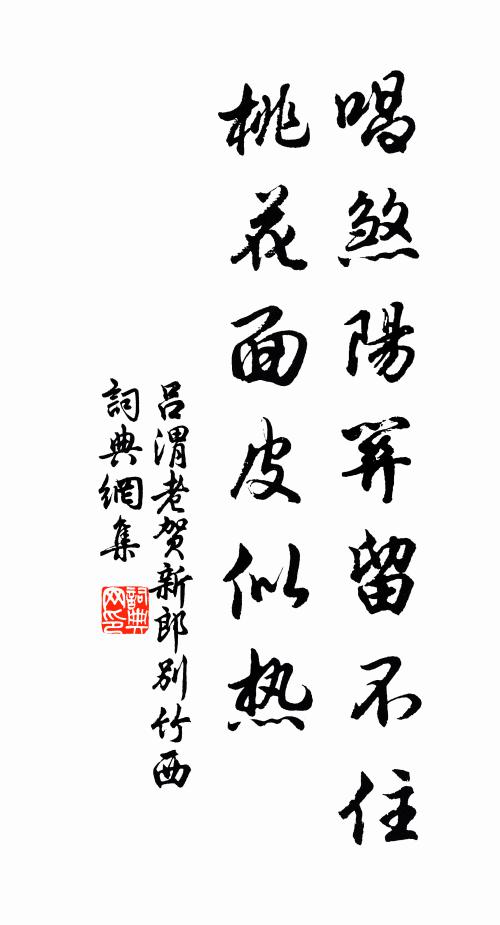 唱煞陽關留不住
桃花面皮似热
吕渭老贺新郎别竹西
詞典網集
詞典
网印